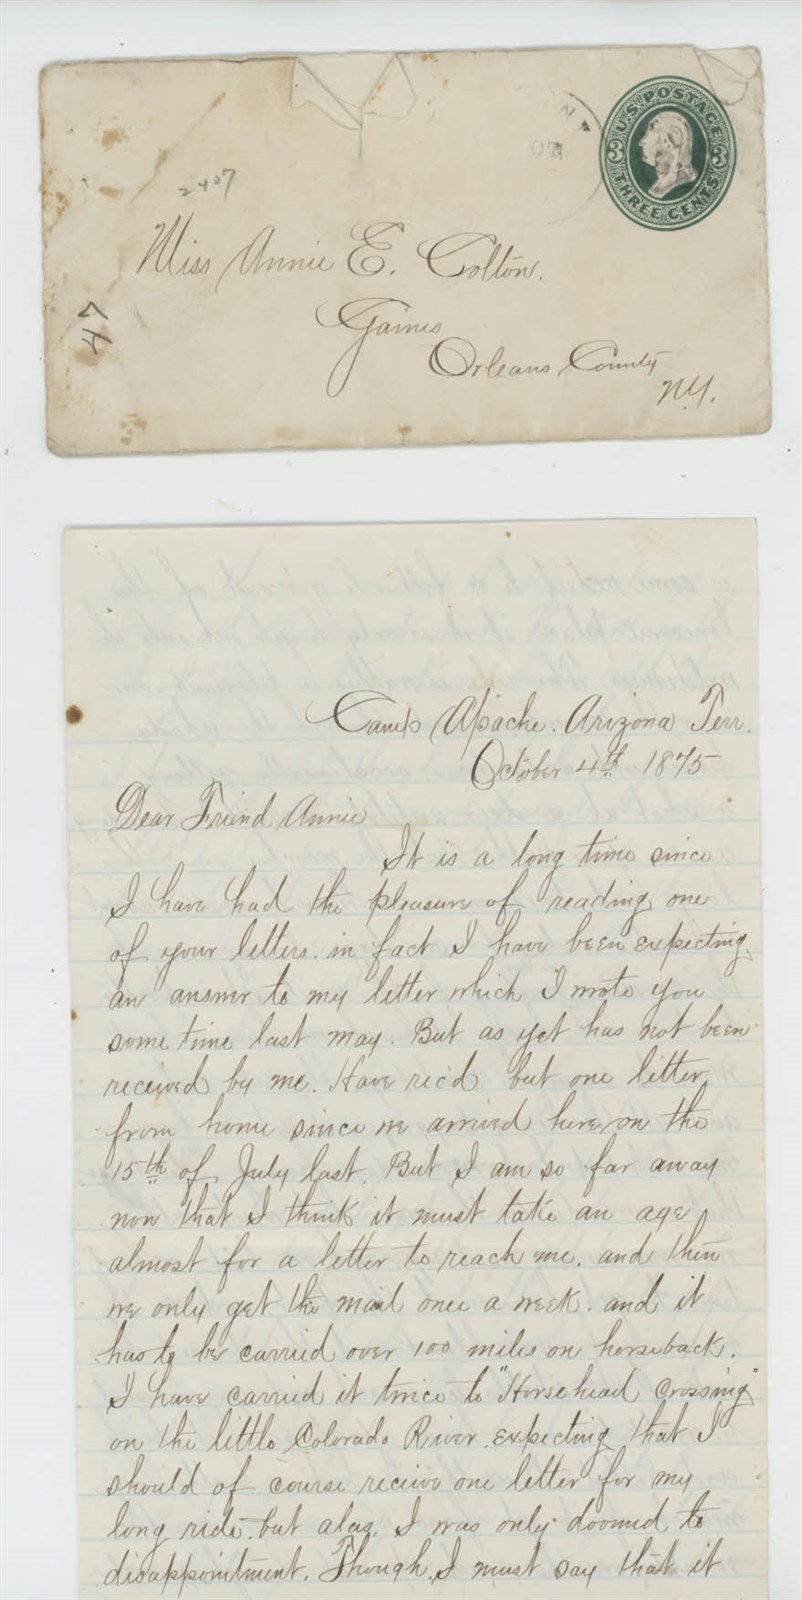 U.S. POSTAGE
3 3
THREE CENTS
2407
47
Miss Annie E. Colton.
Gaines
Orleans County
N.Y.
Camp Apache. Arizona Terr.
October 4th 1875
Dear Friend Annie
It is a long time since
I have had the pleasure of reading one
of your letters. in fact I have been expecting
an answer to my letter which I wrote you
some time last may. But as yet has not been
received by me. Have rec'd but one letter
from home since we arrived here, on the
15th of July last. But I am so far away
now that I think it must take an age
almost for a letter to reach me. and then
we only get the mail once a week. and it
has to be carried over 100 miles on horseback.
I have carried it twice to "Horsehead Crossing"
on the little Colorado River. expecting that I
should of course receive one letter for my
long ride. but alas, I was only doomed to
disappointment. Though, I must say that it